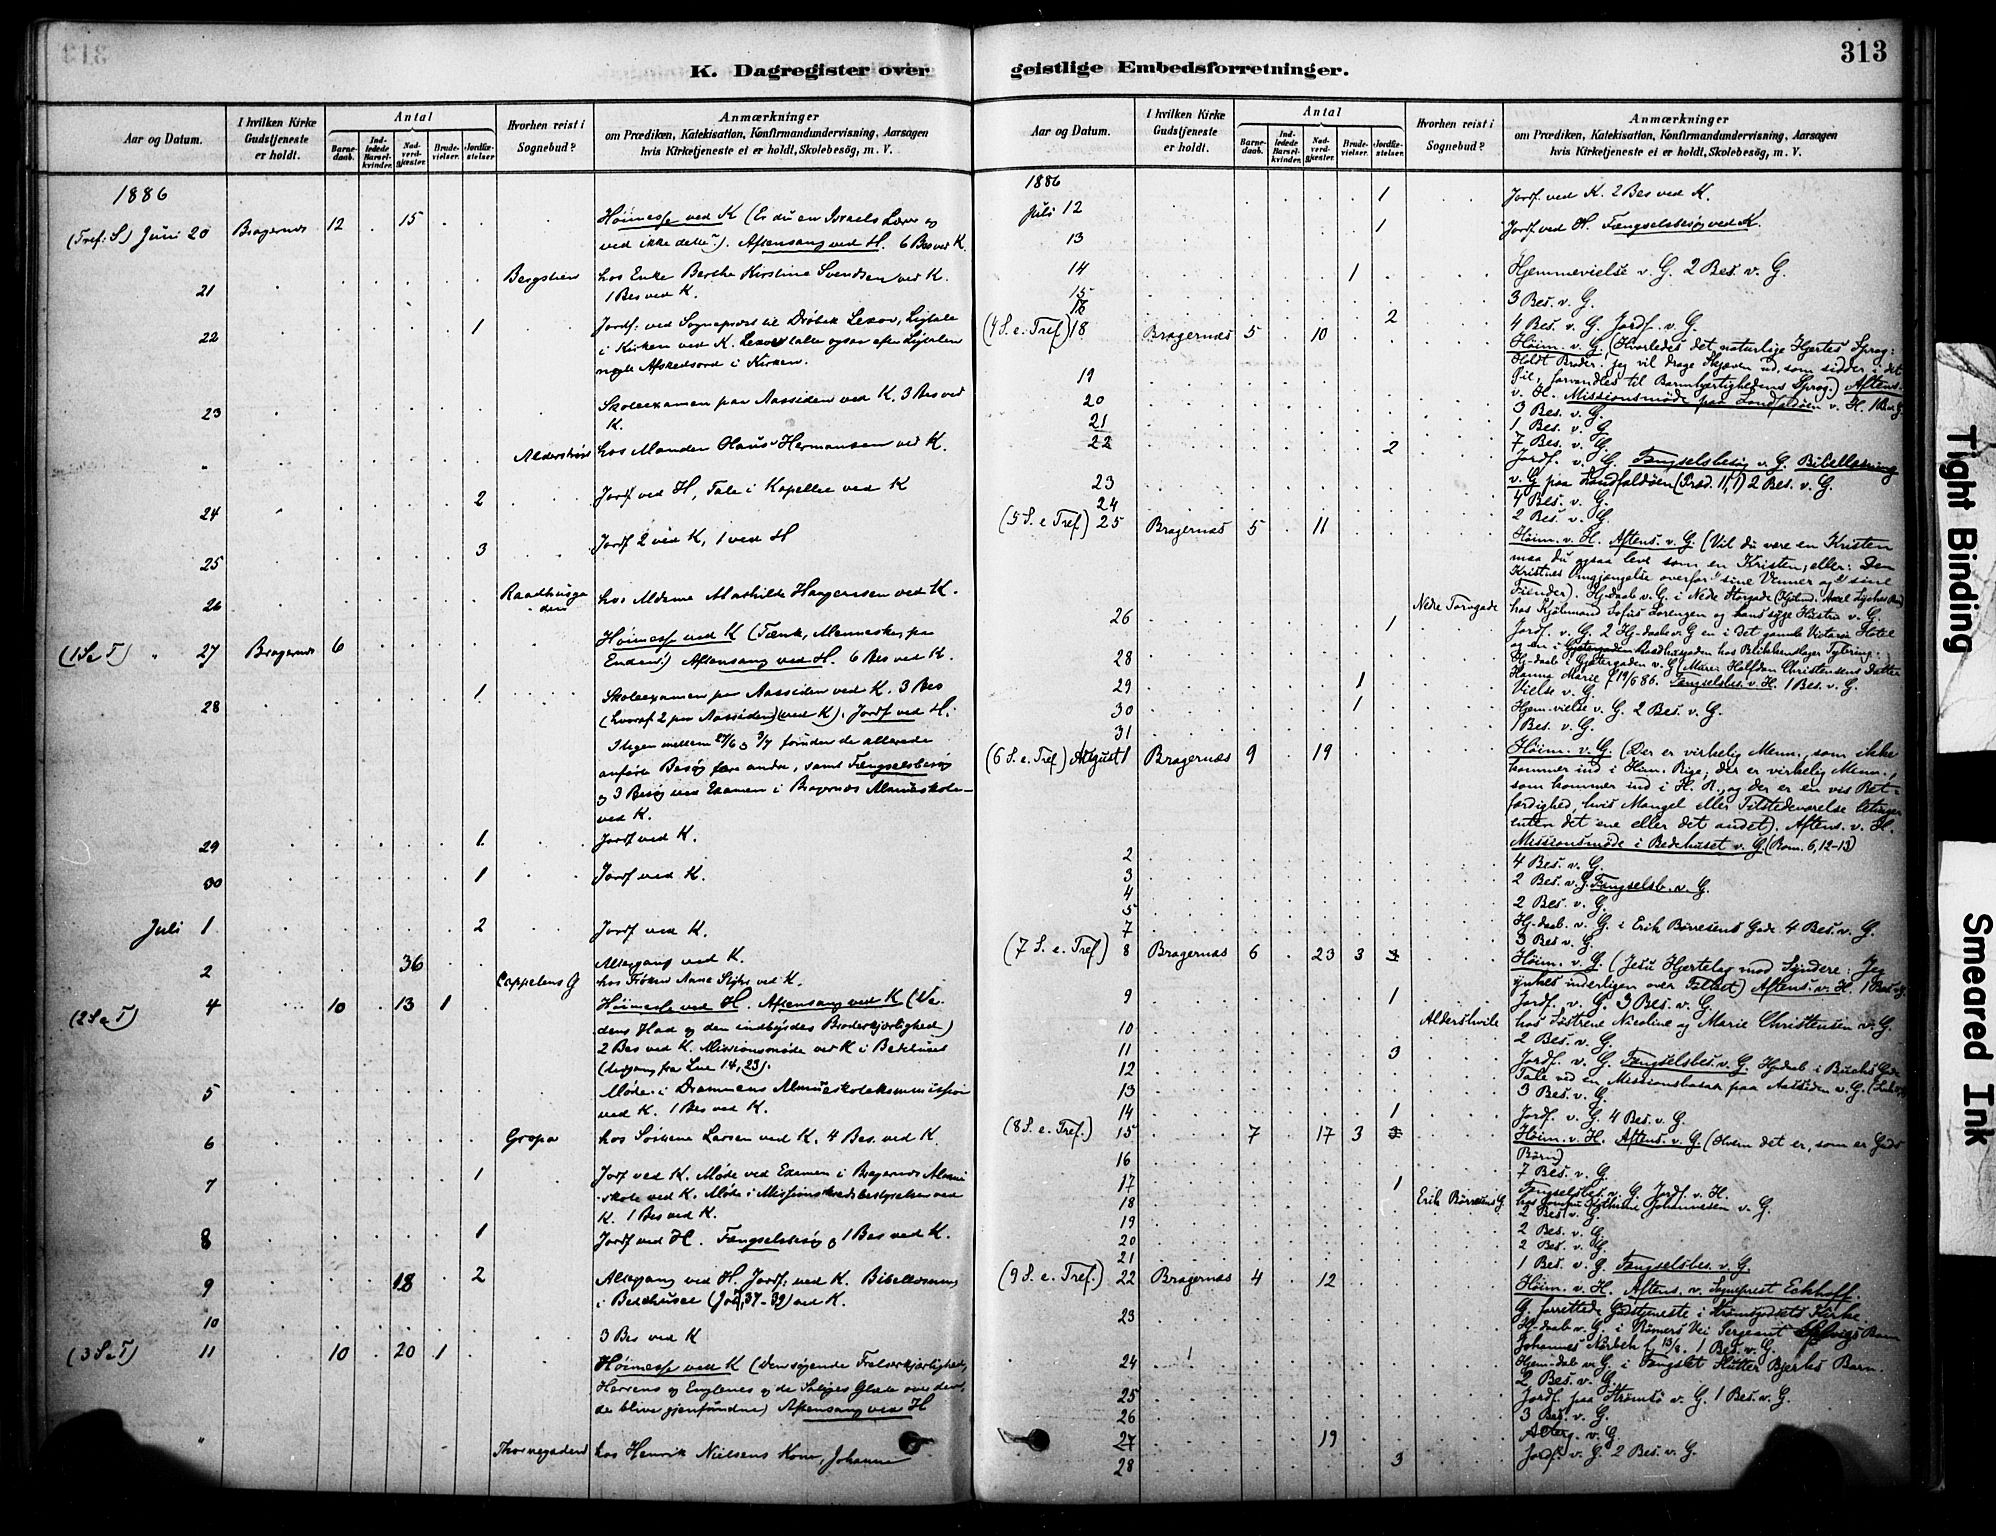 313
K. Dagregister over geistlige Embedsforretninger.
Aar og Datum.
I hvilken Kirke Gudstjeneste er holdt.
Antal
Barnedaab.
Indledede Barselkvinder.
Nadverdgjester.
Brudevielser.
Jordfæstelser
Hvorhen reist i Sognebud?
Anmærkninger
om Prædiken, Katekisation, Konfirmandundervisning, Aarsagen
hvis Kirketjeneste ei er holdt, Skolebesøg, m. V.
1886
(Tref: S) Juni 20 Bragernes 12 15 Høimesse ved K (Er du en Israels Lærer og
ved ikke dette?). Aftensang ved H. 6 Bes ved K.
21 Bergstien hos Enke Berthe Kirstine Svendsen ved K.
1 Bes ved K.
22 1 Jordf: ved Sognepræst til Drøbak Lexow, Ligtale
i Kirken ved K. Lexow talte ogsaa efter Ligtalen
nogle Afskedsord i Kirken.
23 Skoleexamen paa Aassiden ved K. 3 Bes ved
K.
" hos Manden Hans Hermansen ved K.
24 2 Jordf ved H, Tale i Kapellet ved K
25 3 Jordf 2 ved K, 1 ved H
26 Raadhusgaden hos Madame Mathilde ved K.
(1 S e T) " 27 Bragernes 6 Høimesse ved K (Tænk, Menneske, paa
Enden!) Aftensang ved H. 6 Bes ved K.
28 1 Skoleexamen paa Aassiden ved K. 3 Bes
(hvoraf 2 paa Aassiden) (ved K). Jordf ved H.
I Ugen mellem 27/6 og 3/7 foruden de allerede
anførte Besøg flere andre, samt Fængselsbesøg
og 3 Besøg ved Examen i Bragernes Almueskole
ved K.
29 1 Jordf ved K.
30 1 Jordf ved K.
Juli 1 2 Jordf ved K.
2 36 Altergang ved K.
Cappelens G hos Frøken Anne ved K.
(2 S e T) 4 10 13 1 Høimesse ved H. Aftensang ved K (Verdens
Had og den indbyrdes Broderkjærlighed)
2 Bes ved K. Missionsmøde ved K i Bedehuset
(Udgang fra Luc 14, 23).
5 Møde i Drammens Almueskolekommission
ved K. 1 Bes ved K.
6 Gropa hos Larsen ved K. 4 Bes. ved K.
7 1 Jorf ved K. Møde ved Examen i Bragernes Almueskole
ved K. Møde i Missionskredsbestyrelsen ved
K. 1 Bes ved K.
8 1 Jordf ved H. Fængselsbesøg og 1 Bes ved K.
9 18 2 Altergang ved H. Jordf: ved K. Bibellæsning
i Bedehuset (Joh 7, 37-39) ved K.
10 3 Bes ved K
(3 S e T) 11 10 20 1 Høimesse ved K (Den søgende Frelserkjærlighed,
Herrens og Englenes og de Saliges Glæde over dem,
der blive gjenfundne) Aftensang ved H
" Thornegaden hos Henrik Nielsens Kone, Johanne
Aar og Datum.
I hvilken Kirke Gudstjeneste er holdt.
Antal
Barnedaab.
Indledede Barselkvinder.
Nadverdgjester.
Brudevielser.
Jordfæstelser.
Hvorhen reist i Sognebud?
Anmærkninger
om Prædiken, Katekisation, Konfirmandundervisning, Aarsagen
hvis Kirketjeneste ei er holdt, Skolebesøg, m. V.
1886
Juli 12 1 Jordf ved K. 2 Bes ved K.
13 1 Jordf ved H. Fængselsbesøg ved K.
14 1 Hjemmevielse v. G. 2 Bes. v. G.
15 3 Bes. v. G.
16 2 4 Bes. v. G. Jordf. v. G.
(4 S. e. Tref) 18 Bragernes 5 10 Høim. v. G. (Hvorledes det naturlige Hjertes Sprog:
Holdt Broder, jeg vil drage Skjæven ud, som sidder i det
Øie, forvandles til Barmhjertighedens Sprog.) Aftens.
v. H. Missionsmøde paa Landfaldøen v. H. 1 Bes G.
19 3 Bes. v. G.
20 1 Bes. v. G.
21 7 Bes. v. G.
22 2 Jordf. v. G. Fængselsbesøg v. G. Bibellæsning
v. G paa Landfaldøen (Præd. 11, 1) 2 Bes. v. G.
23 4 Bes. v. G.
24 2 Bes. v. G.
(5 S. e Tref) 25 Bragernes 5 11 Høim. v. H. Aftens. v. G. (Vil du være en Kristen
maa du ogsaa leve som en Kristen, eller: Den
Kristnes Omgjængelse overfor sine Venner og sine
Fiender). Hj.daab v. G. i Nedre Storgade
26 Nedre Torvgade 1 hos Kjøbmand Sofus Lorenzen og hans syge Hustru v. G.
Jordf. v. G. 2 Hj-daab v. G en i det gamle Victoria Hotel
og en i Raadhusgaden hos Blikkenslager
28 Hj-daab i Gjætergaden v. G.
Hanna Marie f 19/6 86. Fængselsbes. v. H. 1 Bes. v. G.
29 1 Vielse v. G.
30 1 Hjem-vielse v. G. 2 Bes. v. G.
31 1 Bes. v. G.
(6 S. e. Tref) August 1 Bragernes 9 19 Høim. v. G. (Der er virkelig Menn., som ikke
kommer ind i Him. Rige; der er virkelig Menn.,
som kommer ind i H. R., og der er en vis Retfærdighed,
hvis Mangel eller Tilstedeværelse betinger
enten det ene eller det andet). Aftens. v. H.
Missionsmøde i Bedehuset v. G. (Rom. 6, 12-13)
2 4 Bes. v. G.
3 2 Bes. v. G. Fængselsb. v. G.
4 2 Bes. v. G.
5 Hj-daab. v. G. i Erik Børresens Gade 4 Bes. v. G.
7 3 Bes v. G.
(7 S. e. Tref) 8 Bragernes 6 23 3 Høim. v. G. (Jesu Hjertelag mod Syndere: Jeg
ynkes inderligen over Folket) Aftens. v. H. 1 Bes v. G.
9 1 Jordf. v. G. 3 Bes. v. G.
10 Alderstvile hos Søstrene Nicoline og Marie Christensen v. G.
2 Bes. v. G.
11 3 Jordf. v. G.
12 Fængselsbes. v. G. Hjdaab i Buchs Gade
Tale ved en Missionsbasar paa Aassiden v. G.
13 3 Bes. v. G.
14 1 Jordf. v. G. 4 Bes. v. G.
(8 S. e. Tref.) 15 7 17 3 Høim. v. H. Aftens. v. G. (Hvem det er, som er Guds
Børn)
16 7 Bes. v. G.
17 1 Fængselsbes. v. G. Jordf. v. H.
18 Erik Børresens G. hos Johannesen v. G.
2 Bes. v. G.
19 2 Bes. v. G.
20 2 Bes. v. G.
21 1 Bes. v. G Fængselsbes. v. G.
(9 S. e. Tref.) 22 Bragernes 4 12 Høim. v. H. Aftens. v. Sognepræst Eckhoff.
G. forrettede Gudstjeneste i Strømsgodsets Kirke
23 Hj-daab v. G. i Rømers Vei Sergeant Barn
Johannes f. 13/8. 1 Bes. v. G.
24 Hjem-dab v. G. i Fængslet Slutter Bjerkes Barn.
2 Bes. v. G.
25 Jordf. paa Strømsø v. G. 1 Bes. v. G.
26 3 Bes. v. G.
27 19 Alterg. v. G.
28 3 Jordf. v. G. 2 Bes. v. G.
Tight Binding
Smeared Ink